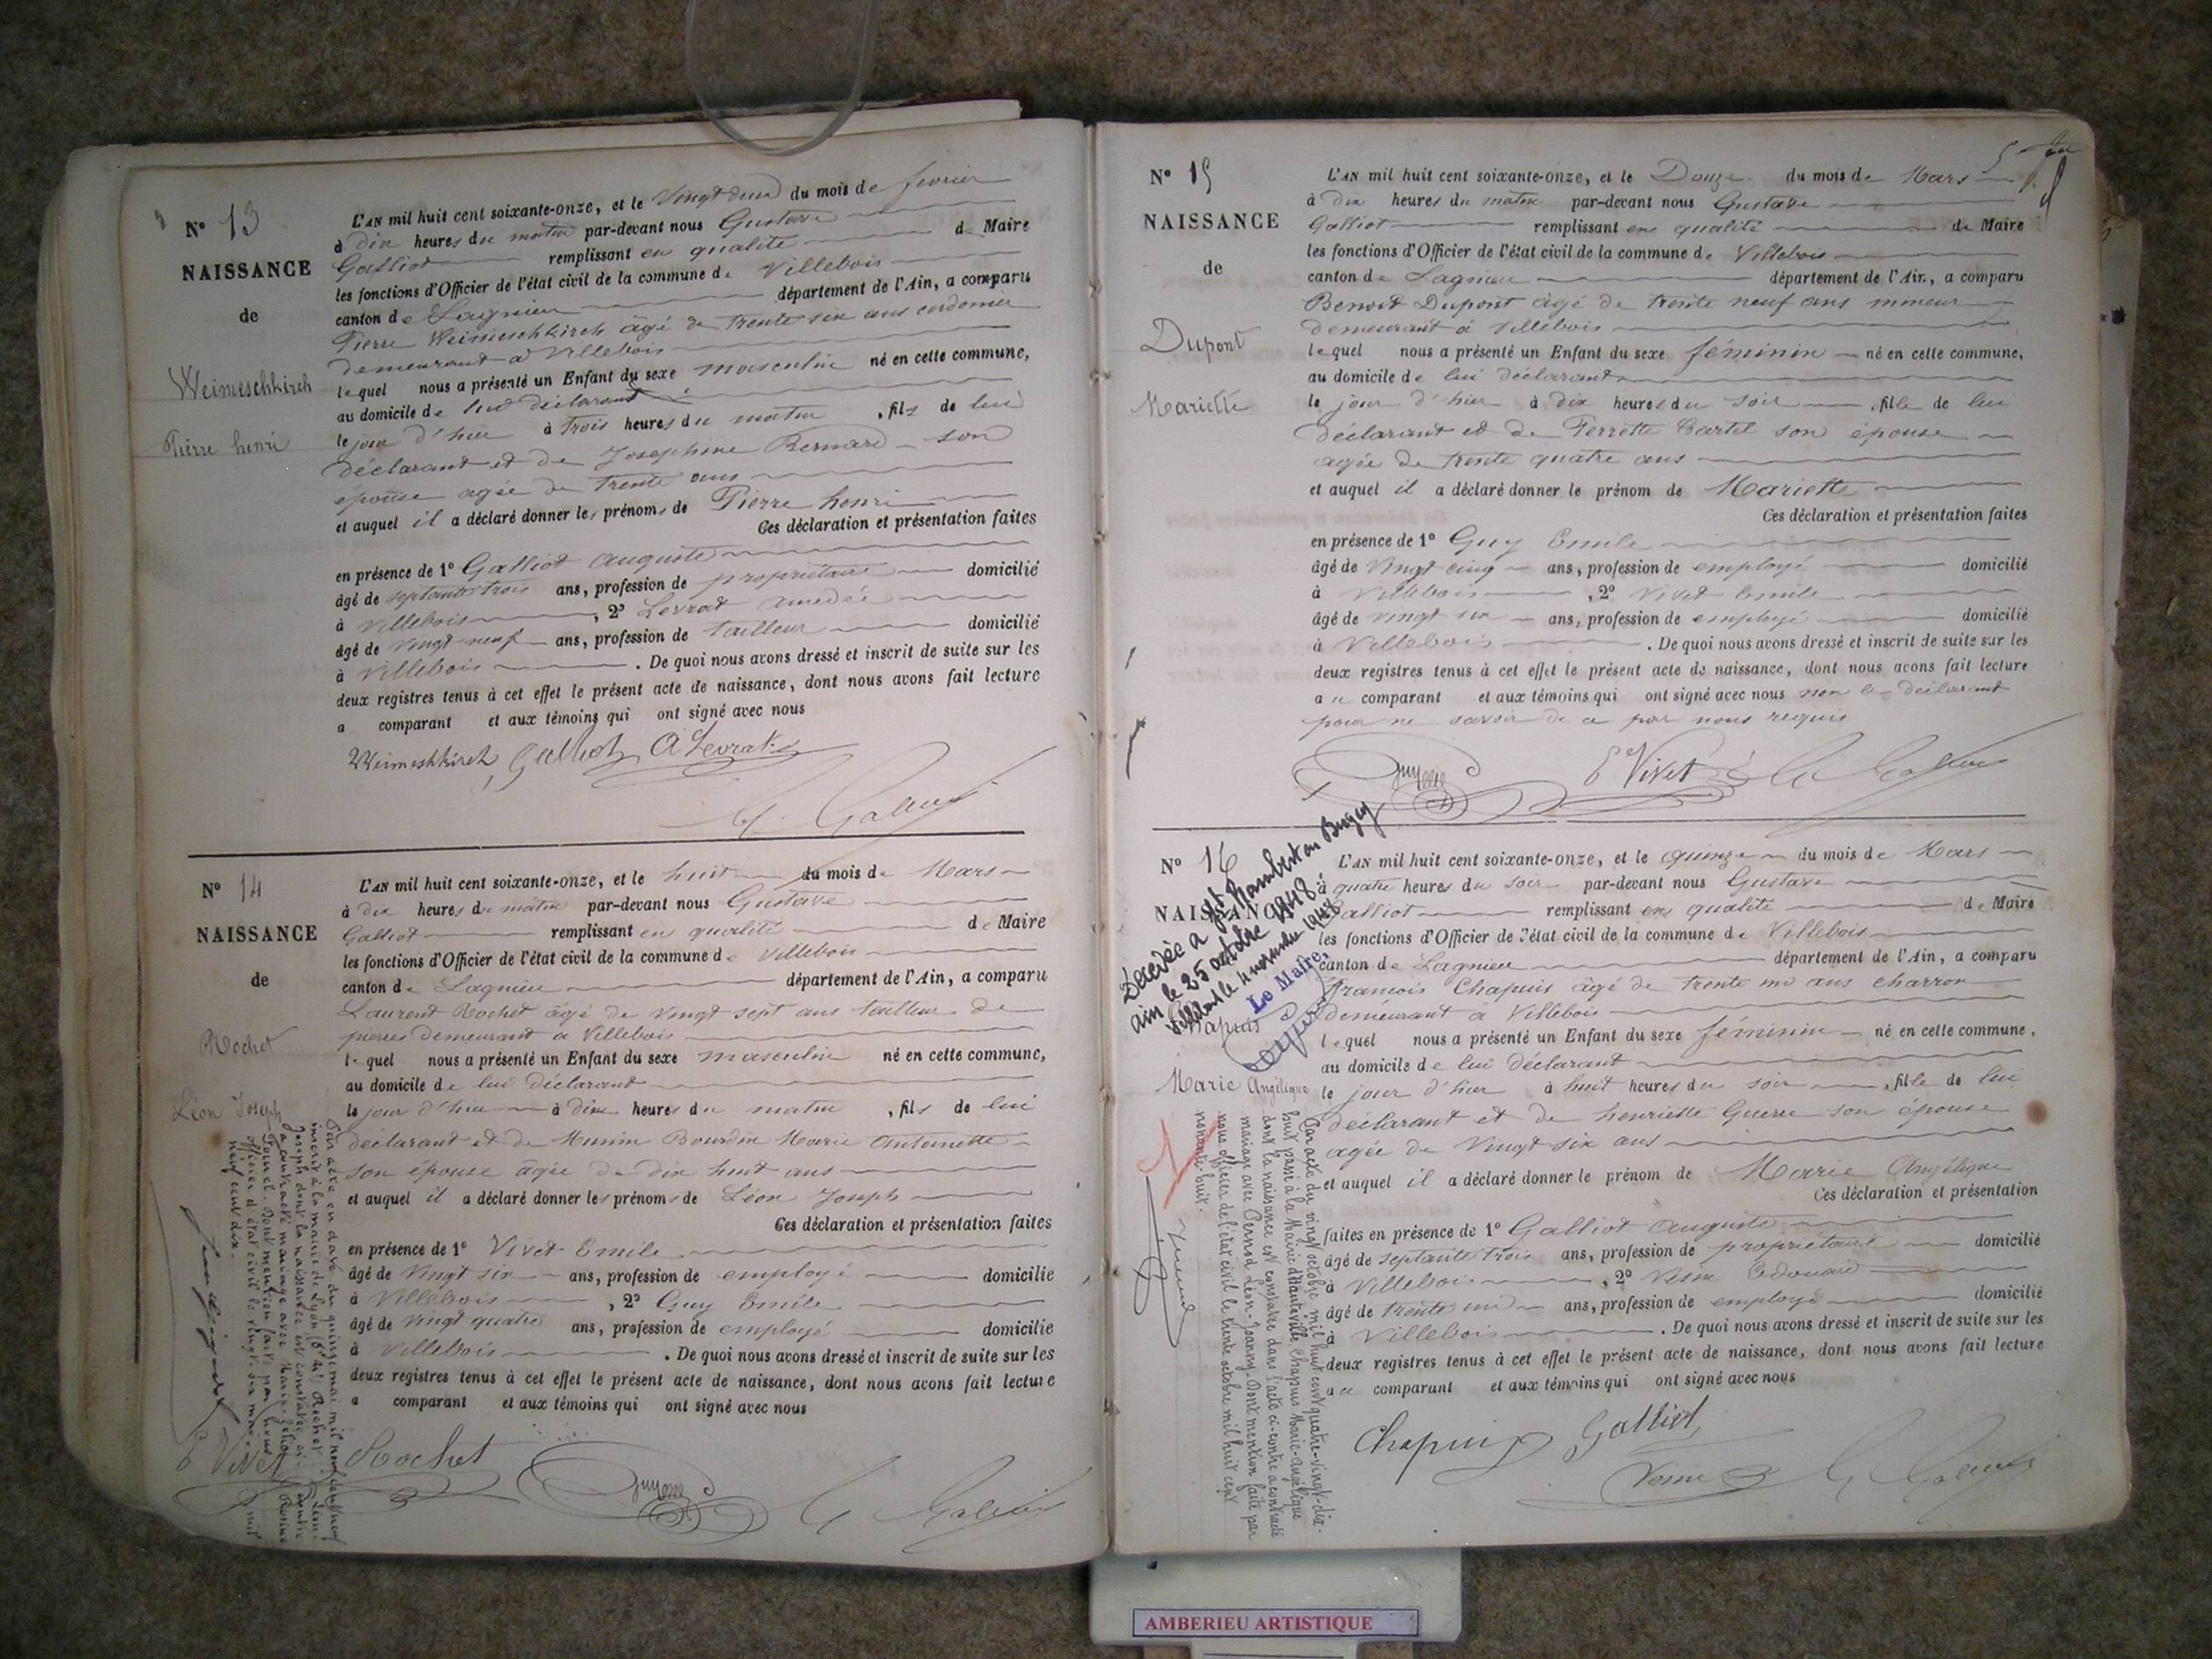 N° 13
NAISSANCE
de
Weimeschkirch
Pierre henri
L'AN mil huit cent soixante-onze, et le vingt deux du mois de fevrier
à dix heures du matin par-devant nous Gustave
Galliot remplissant en qualité de Maire
les fonctions d'Officier de l'état civil de la commune de Villebois
canton de Lagnieu département de l'Ain, a comparu
Pierre Weimeschkirch âgé de trente six ans cordonier
demeurant à Villebois
lequel nous a présenté un Enfant du sexe masculin né en cette commune,
au domicile de lui déclarant
le jour d'hier à trois heures du matin , fils de lui
déclarant et de Josephine Bernard son
épouse agée de trente ans
et auquel il a déclaré donner les prénoms de Pierre henri
Ces déclaration et présentation faites
en présence de 1° Galliot Auguste
âgé de septante trois ans, profession de propriétaire domicilié
à Villebois , 2° Levrat Amedée
âgé de vingt neuf ans, profession de tailleur domicilié
à Villebois . De quoi nous avons dressé et inscrit de suite sur les
deux registres tenus à cet effet le présent acte de naissance, dont nous avons fait lecture
a comparant et aux témoins qui ont signé avec nous
Weimeshkirch Galliot A Levrat
N° 14
NAISSANCE
de
Rochet
Léon Joseph
L'AN mil huit cent soixante-onze, et le huit du mois de Mars
à dix heures du matin par-devant nous Gustave
Galliot remplissant en qualité de Maire
les fonctions d'Officier de l'état civil de la commune de Villebois
canton de Lagnieu département de l'Ain, a comparu
Laurent Rochet âgé de vingt sept ans tailleur de
pierres demeurant à Villebois
lequel nous a présenté un Enfant du sexe masculin né en cette commune,
au domicile de lui déclarant
le jour d'hier à dix heures du matin , fils de lui
déclarant et de Munin Bourdin Marie Antoinette
son épouse âgée de dix huit ans
et auquel il a déclaré donner les prénoms de Léon Joseph
Ces déclaration et présentation faites
en présence de 1° Vivet Emile
âgé de vingt six ans, profession de employé domicilié
à Villebois , 2° Guy Emile
âgé de vingt quatre ans, profession de employé domicilié
à Villebois . De quoi nous avons dressé et inscrit de suite sur les
deux registres tenus à cet effet le présent acte de naissance, dont nous avons fait lecture
a comparant et aux témoins qui ont signé avec nous
E Vivet Rochet Guy
Par acte en date du quinze mai mil neuf cent
inscrit à la mairie de Lyon Rochet Léon
Joseph dont la naissance est constatée ci-contre
a contracté mariage avec Marie
Dont mention faite par nous
officier d'état civil le vingt-six mai mil
neuf cent dix.
N° 15
NAISSANCE
de
Dupont
Mariette
L'AN mil huit cent soixante-onze, et le Douze du mois de Mars
à dix heures du matin par-devant nous Gustave
Galliot remplissant en qualité de Maire
les fonctions d'Officier de l'état civil de la commune de Villebois
canton de Lagnieu département de l'Ain, a comparu
Benoit Dupont âgé de trente neuf ans mineur
demeurant à Villebois
lequel nous a présenté un Enfant du sexe féminin né en cette commune,
au domicile de lui déclarant
le jour d'hier à dix heures du soir , fille de lui
déclarant et de Perrette Cartel son épouse
agée de trente quatre ans
et auquel il a déclaré donner le prénom de Mariette
Ces déclaration et présentation faites
en présence de 1° Guy Emile
âgé de vingt cinq ans, profession de employé domicilié
à Villebois , 2° Vivet Emile
âgé de vingt six ans, profession de employé domicilié
à Villebois . De quoi nous avons dressé et inscrit de suite sur les
deux registres tenus à cet effet le présent acte de naissance, dont nous avons fait lecture
a u comparant et aux témoins qui ont signé avec nous non le déclarant
pour ne savoir de ce par nous requis
Guy E Vivet
N° 16
NAISSANCE
Marie Angélique
Décédée à St Rambert en Bugey
ain le 25 octobre 1948.
Villebois le 4 novembre 1948
Le Maire,
L'AN mil huit cent soixante-onze, et le quinze du mois de Mars
à quatre heures du soir par-devant nous Gustave
Galliot remplissant en qualité de Maire
les fonctions d'Officier de l'état civil de la commune de Villebois
canton de Lagnieu département de l'Ain, a comparu
francois Chapuis âgé de trente un ans charron
demeurant à Villebois
lequel nous a présenté un Enfant du sexe féminin né en cette commune,
au domicile de lui déclarant
le jour d'hier à huit heures du soir , fille de lui
déclarant et de henriette Guerre son épouse
agée de vingt six ans
et auquel il a déclaré donner le prénom de Marie Angélique
Ces déclaration et présentation
faites en présence de 1° Galliot Auguste
âgé de septante trois ans, profession de propriétaire domicilié
à Villebois , 2° Vesin Edouard
âgé de trente un ans, profession de employé domicilié
à Villebois . De quoi nous avons dressé et inscrit de suite sur les
deux registres tenus à cet effet le présent acte de naissance, dont nous avons fait lecture
a u comparant et aux témoins qui ont signé avec nous
Chapuis Galliot
Par acte du vingt octobre mil huit cent quatre-vingt-dix-
huit passé à la Mairie d'Hauteville Chapuis Marie-Angélique
dont la naissance est constatée dans l'acte ci-contre a contracté
mariage avec Pernod Léon-Joanny. Dont mention faite par
nous officier de l'état civil le trente octobre mil huit cent
nonante-huit.
AMBERIEU ARTISTIQUE